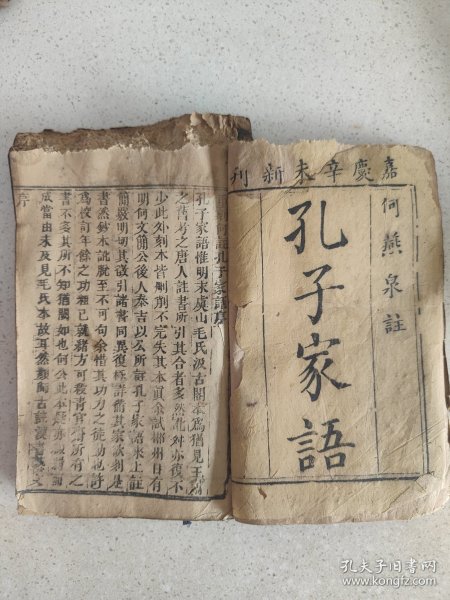 嘉慶辛未新刊
何燕泉註
孔子家語
孔子家語序
孔子家語惟明末虞山毛氏汲古閣本爲猶見王
之舊考之唐人註書所引其合者多然訛舛亦復不
少此外刻本皆刪削不完失其本真余試郴州日有
明何文簡公後人奉吉以公所註孔子家語來上註
簡嚴明切其徵引諸書同異復極詳備其家欲刻是
書然鈔本訛脫至不可句余惜其功力之
爲校訂年餘之功粗已就緒方可殺青
書不妄其所不知猶闕如也何公此本
成當由未及見毛氏本故耳然
序
孔夫子旧书网
www.kongfz.com